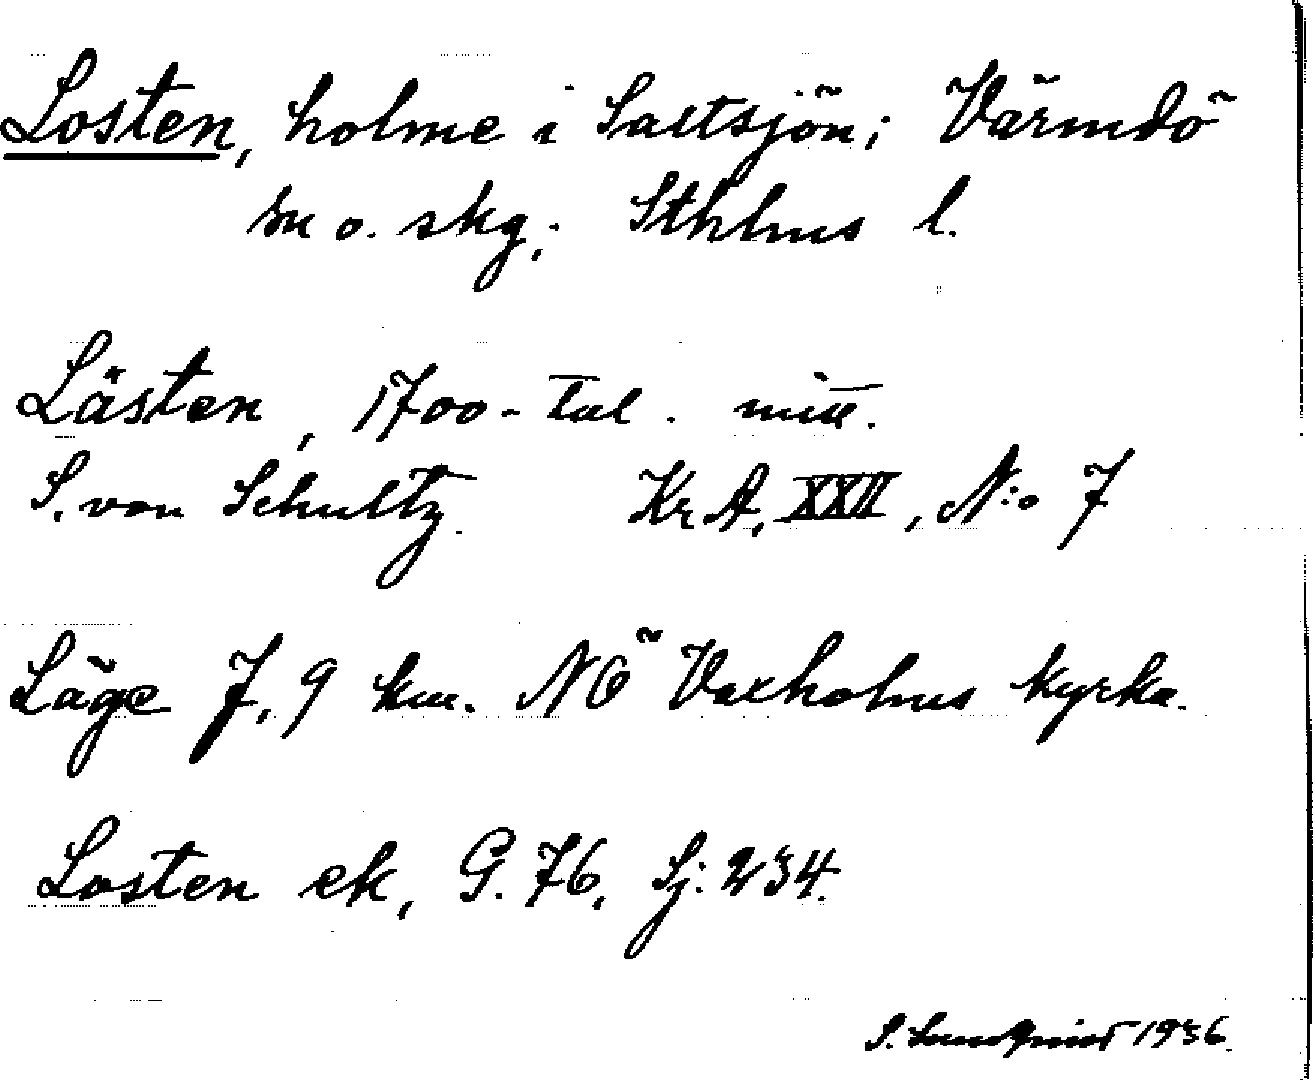 Losten, holme i Saltsjön; Värmdö
sn o. skg; Sthlms l.
Lästen, 1700-tal. mitt.
S. von Schultz. Kr A, XXII, N:o 7
Läge 7,9 km. NÖ Vaxholms kyrka.
Losten ek, G. 76, Sj: 234.
S. Lundquist 1936.